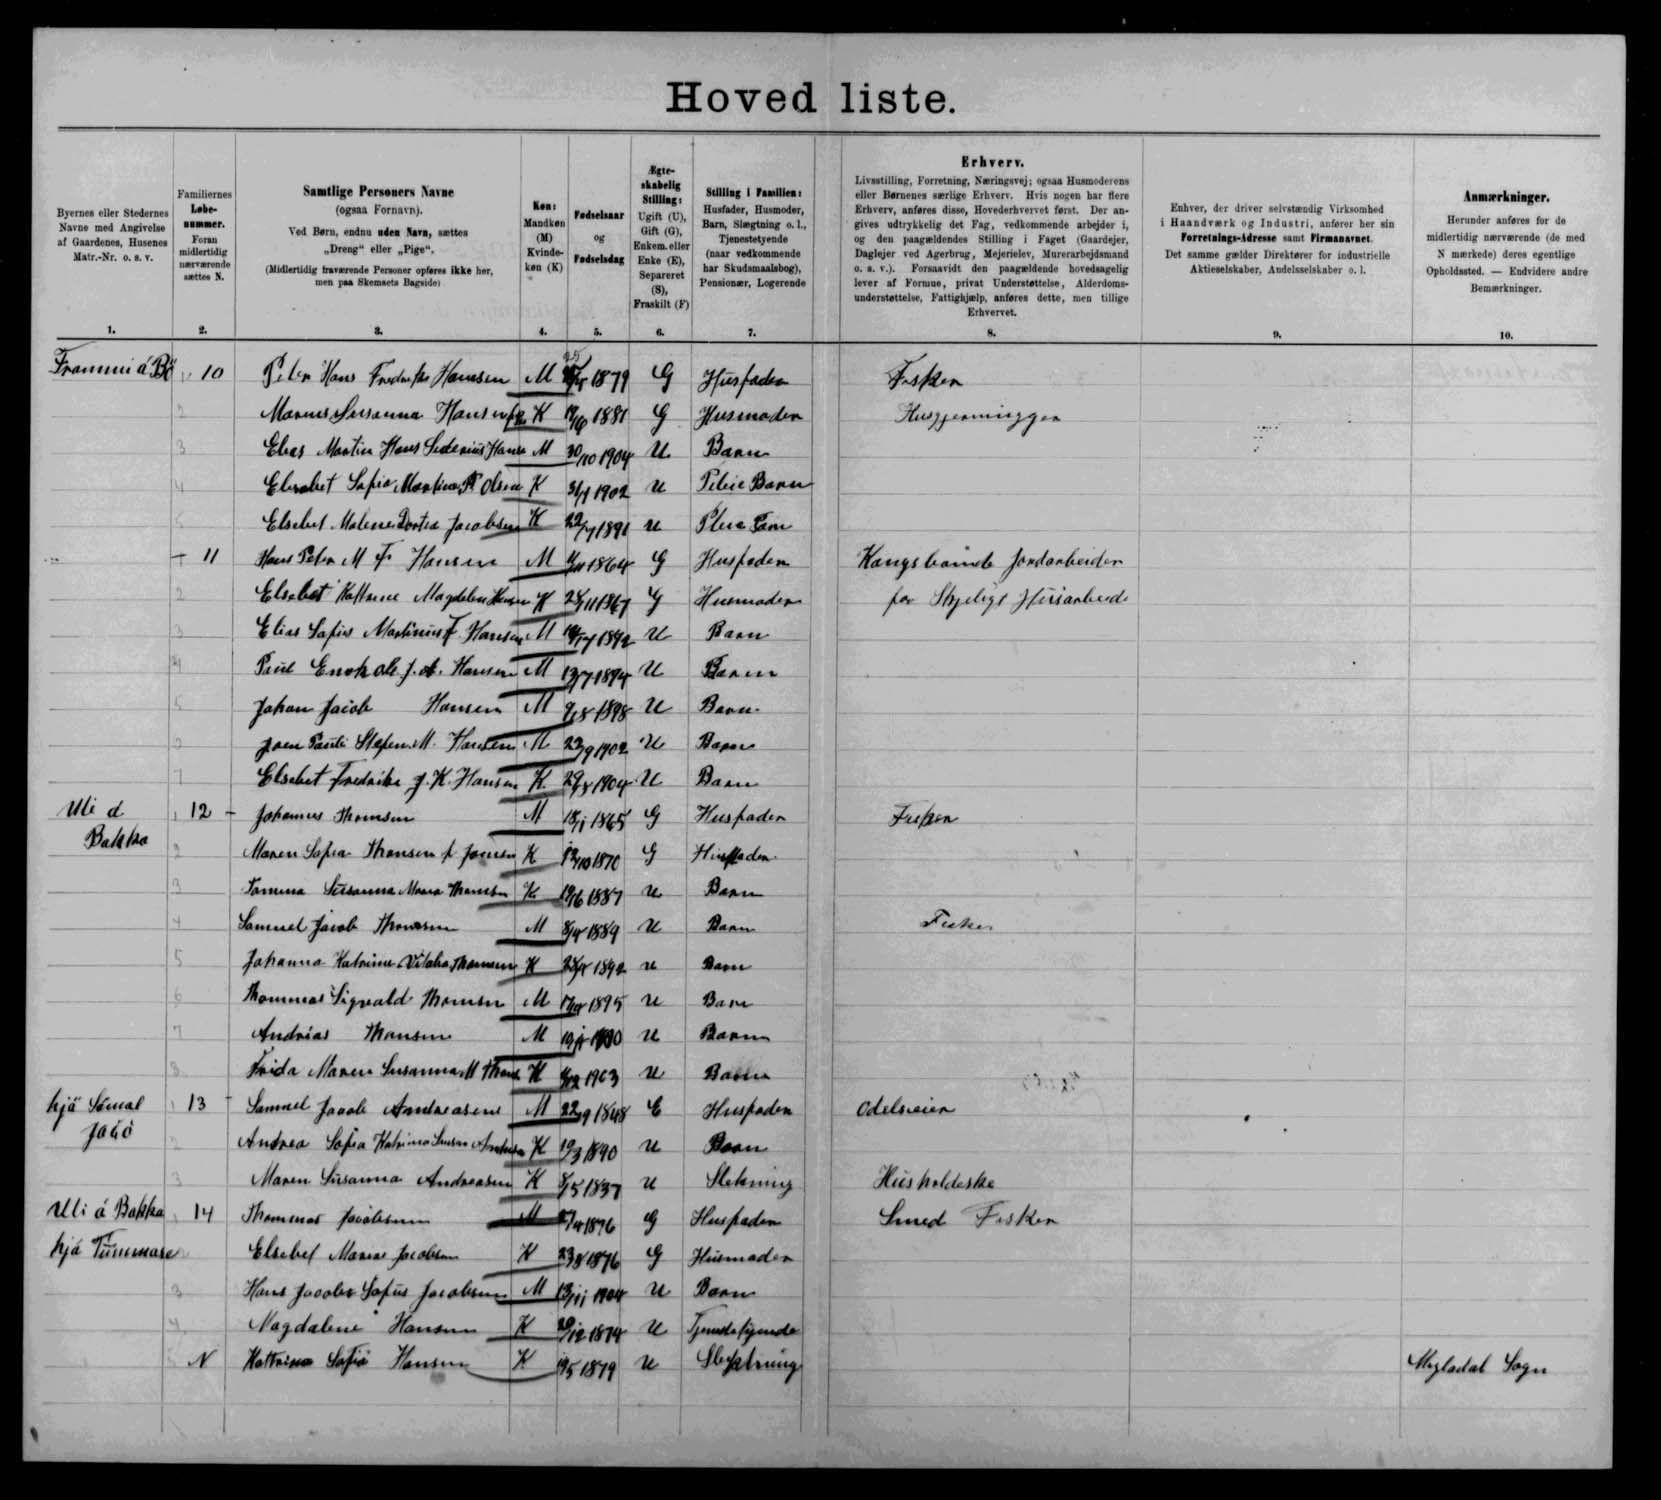 Hoved liste.
Byernes eller Stedernes Navne med Angivelse af Gaardenes, Husenes Matr.-Nr. o. s. v.
Familiernes Løbenummer. Foran midlertidig nærværende sættes N.
Samtlige Personers Navne
(ogsaa Fornavn).
Ved Børn, endnu uden Navn, sættes „Dreng“ eller „Pige“.
(Midlertidig fraværende Personer opføres ikke her, men paa Skemaets Bagside)
Køn: Mandkøn (M) Kvindekøn (K)
Fødselsaar og Fødselsdag
Ægteskabelig Stilling: Ugift (U), Gift (G), Enkem. eller Enke (E), Separeret (S), Fraskilt (F)
Stilling i Familien: Husfader, Husmoder, Barn, Slægtning o. l., Tjenestetyende (naar vedkommende har Skudsmaalsbog), Pensionær, Logerende
Erhverv.
Livsstilling, Forretning, Næringsvej; ogsaa Husmoderens eller Børnenes særlige Erhverv. Hvis nogen har flere Erhverv, anføres disse, Hovederhvervet først. Der angives udtrykkelig det Fag, vedkommende arbejder i, og den paagældendes Stilling i Faget (Gaardejer, Daglejer ved Agerbrug, Mejerielev, Murerarbejdsmand o. s. v.). Forsaavidt den paagældende hovedsagelig lever af Formue, privat Understøttelse, Alderdomsunderstøttelse, Fattighjælp, anføres dette, men tillige Erhvervet.
Enhver, der driver selvstændig Virksomhed i Haandværk og Industri, anfører her sin Forretnings-Adresse samt Firmanavnet. Det samme gælder Direktører for industrielle Aktieselskaber, Andelsselskaber o. l.
Anmærkninger.
Herunder anføres for de midlertidig nærværende (de med N mærkede) deres egentlige Opholdssted. — Endvidere andre Bemærkninger.
1. 2. 3. 4. 5. 6. 7. 8. 9. 10.
Frammi á Bö 1 10 Peter Hans Fredrik Hansen M 1879 G Husfader Fisker
2 Maren Susanna Hansen K 1881 G Husmoder Husgjerninggen
3 Elias Martin Hans Hansen M 30/10 1904 U Barn
4 Elisabet Sofia Martina Olsen K 31/1 1902 U Barn
5 Elsebet Malene Dortea Jacobsen K 22/7 1891 U
11 Hans Peter M F Hansen M 1864 G Husfader Kongsbonde Jordarbeider
2 Elsebet Kattrine Magdalene Hansen K 1867 G Husmoder for Huusarbeide
3 Elias Sofus Martinus F Hansen M 1892 U Barn
4 Paul Enok Hansen M 13/7 1894 U Barn
5 Johan Jacob Hansen M 9/8 1898 U Barn
Joen Pauli Stefen M. Hansen M 23/9 1902 U Barn
7 Elsebet Fredrika J. K. Hansen K 1904 U Barn
Uti á 1 12 Johannes Thomsen M 18/1 1865 G Husfader Fisker
Bakka
2 Maren Sofia Thomsen f. Joensen K 1870 G
3 Susanna Maria Thomsen K 19/6 1887 U Barn
4 Samuel Jacob Thomsen M 8/4 1889 U Barn Fisker
5 Johanna Katrine Thomsen K 1892 U Barn
6 Thommas Sigvald Thomsen M 1895 U Barn
7 Andrias Thomsen M U Barn
8 Frida Maren Susanna M K 1903 U Barn
hjá Sámal 1 13 Samuel Jacob Andreasen M 22/9 1848 E Husfader Odelseier
Jacó
2 Andrea Sofia Katrina K 19/3 1890 U Barn
3 Maren Susanna Andreasen K 8/5 1837 U Slektning Husholderske
Uti á Bakka 1 14 Thommas Jacobsen M 1876 G Husfader Smed Fisker
hjá Tummasi Elsebet Maria Jacobsen K 23/8 1876 G Husmoder
3 Hans Jacob Sofus Jacobsen M 13/11 1904 U Barn
4 Magdalene Hansen K 29/12 1874 U Tjenestetyende
5 N Kattrina Sofia Hansen K 19/5 1879 U Slektning Mygladal Sogn